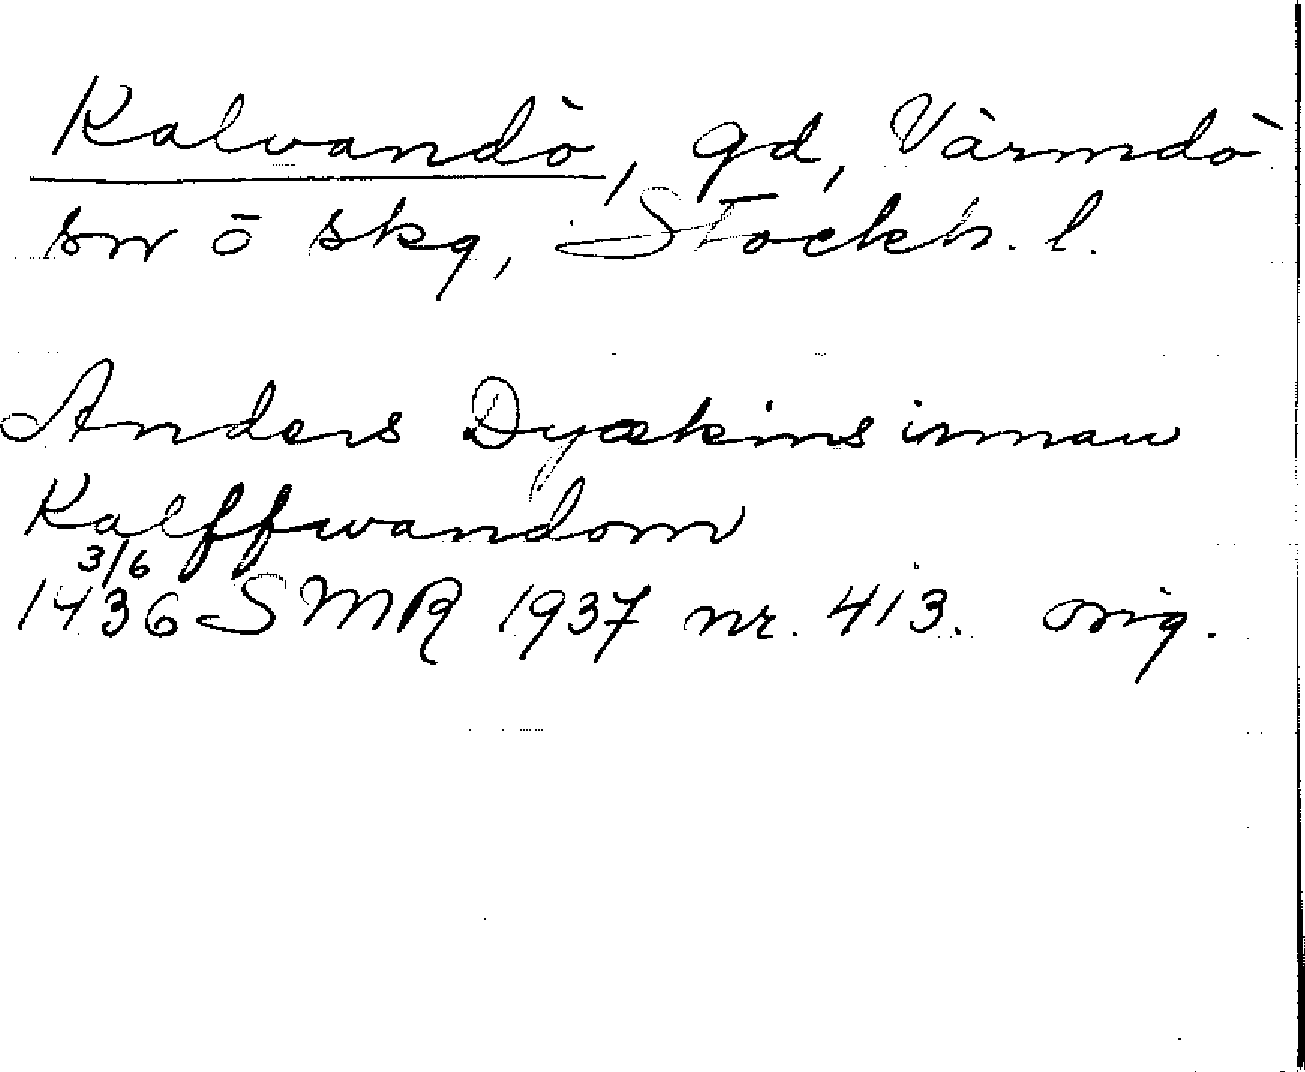 Kalvandö, gd, Värmdö
sn o skg, Stockh. l.
Anders Dyækins innan
Kalffwandom
3/6
1436 SMR 1937 nr. 413. orig.